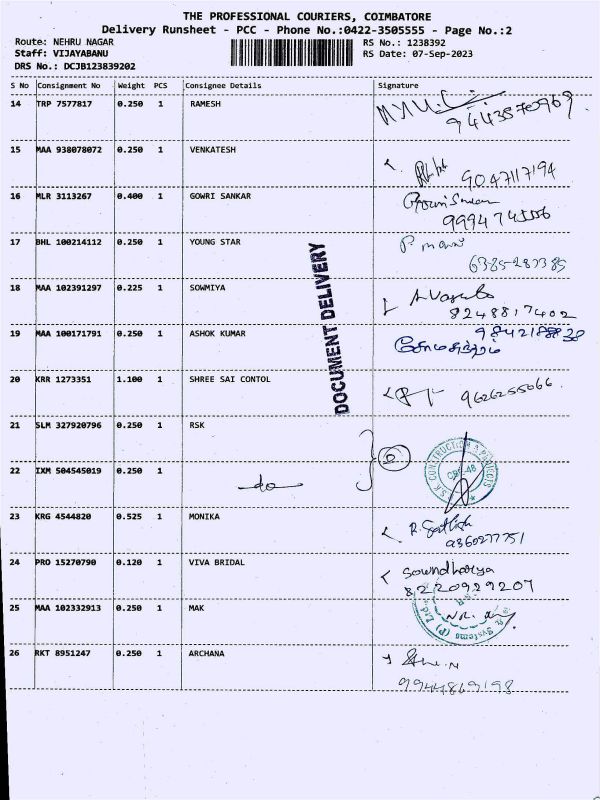 THE PROFESSIONAL COURIERS, COIMBATORE
Delivery Runsheet - PCC - Phone No.:0422-3505555 - Page No.:2
Route: NEHRU NAGAR
RS No.: 1238392
Staff: VIJAYABANU
RS Date: 07-Sep-2023
DRS No.: DCJB123839202
S No Consignment No Weight PCS Consignee Details Signature
14 TRP 7577817 0.250 1 RAMESH
15 MAA 938078072 0.250 1 VENKATESH
9047117194
16 MLR 3113267 0.400 1 GOWRI SANKAR
17 BHL 100214112 0.250 1 YOUNG STAR
6385-287385
18 MAA 102391297 0.225 1 SOWMIYA
8248817402
19 MAA 100171791 0.250 1 ASHOK KUMAR
20 KRR 1273351 1.100 1 SHREE SAI CONTOL
9626255066
21 SLM 327920796 0.250 1 RSK
22 IXM 504545019 0.250 1
do
23 KRG 4544820 0.525 1 MONIKA
R. Sathish
9360277751
24 PRO 15270790 0.120 1 VIVA BRIDAL
Sowndharya
8220929207
25 MAA 102332913 0.250 1 MAK
26 RKT 8951247 0.250 1 ARCHANA
9944869198
DOCUMENT DELIVERY